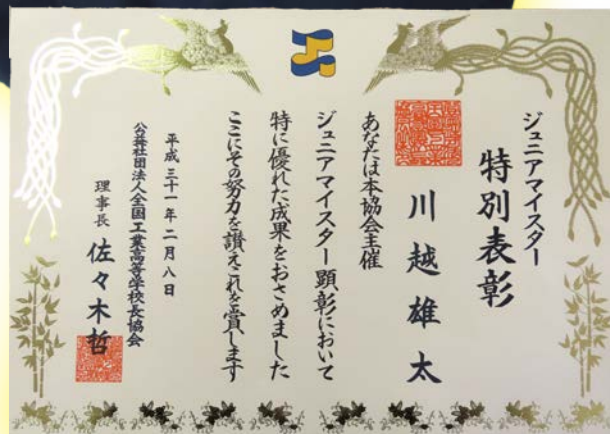 ジュニアマイスター
特別表彰
川越雄太
あなたは本協会主催
ジュニアマイスター顕彰において
特に優れた成果をおさめました
ここにその努力を讃えこれを賞します
平成三十一年二月八日
公益社団法人全国工業高等学校長協会
理事長 佐々木哲